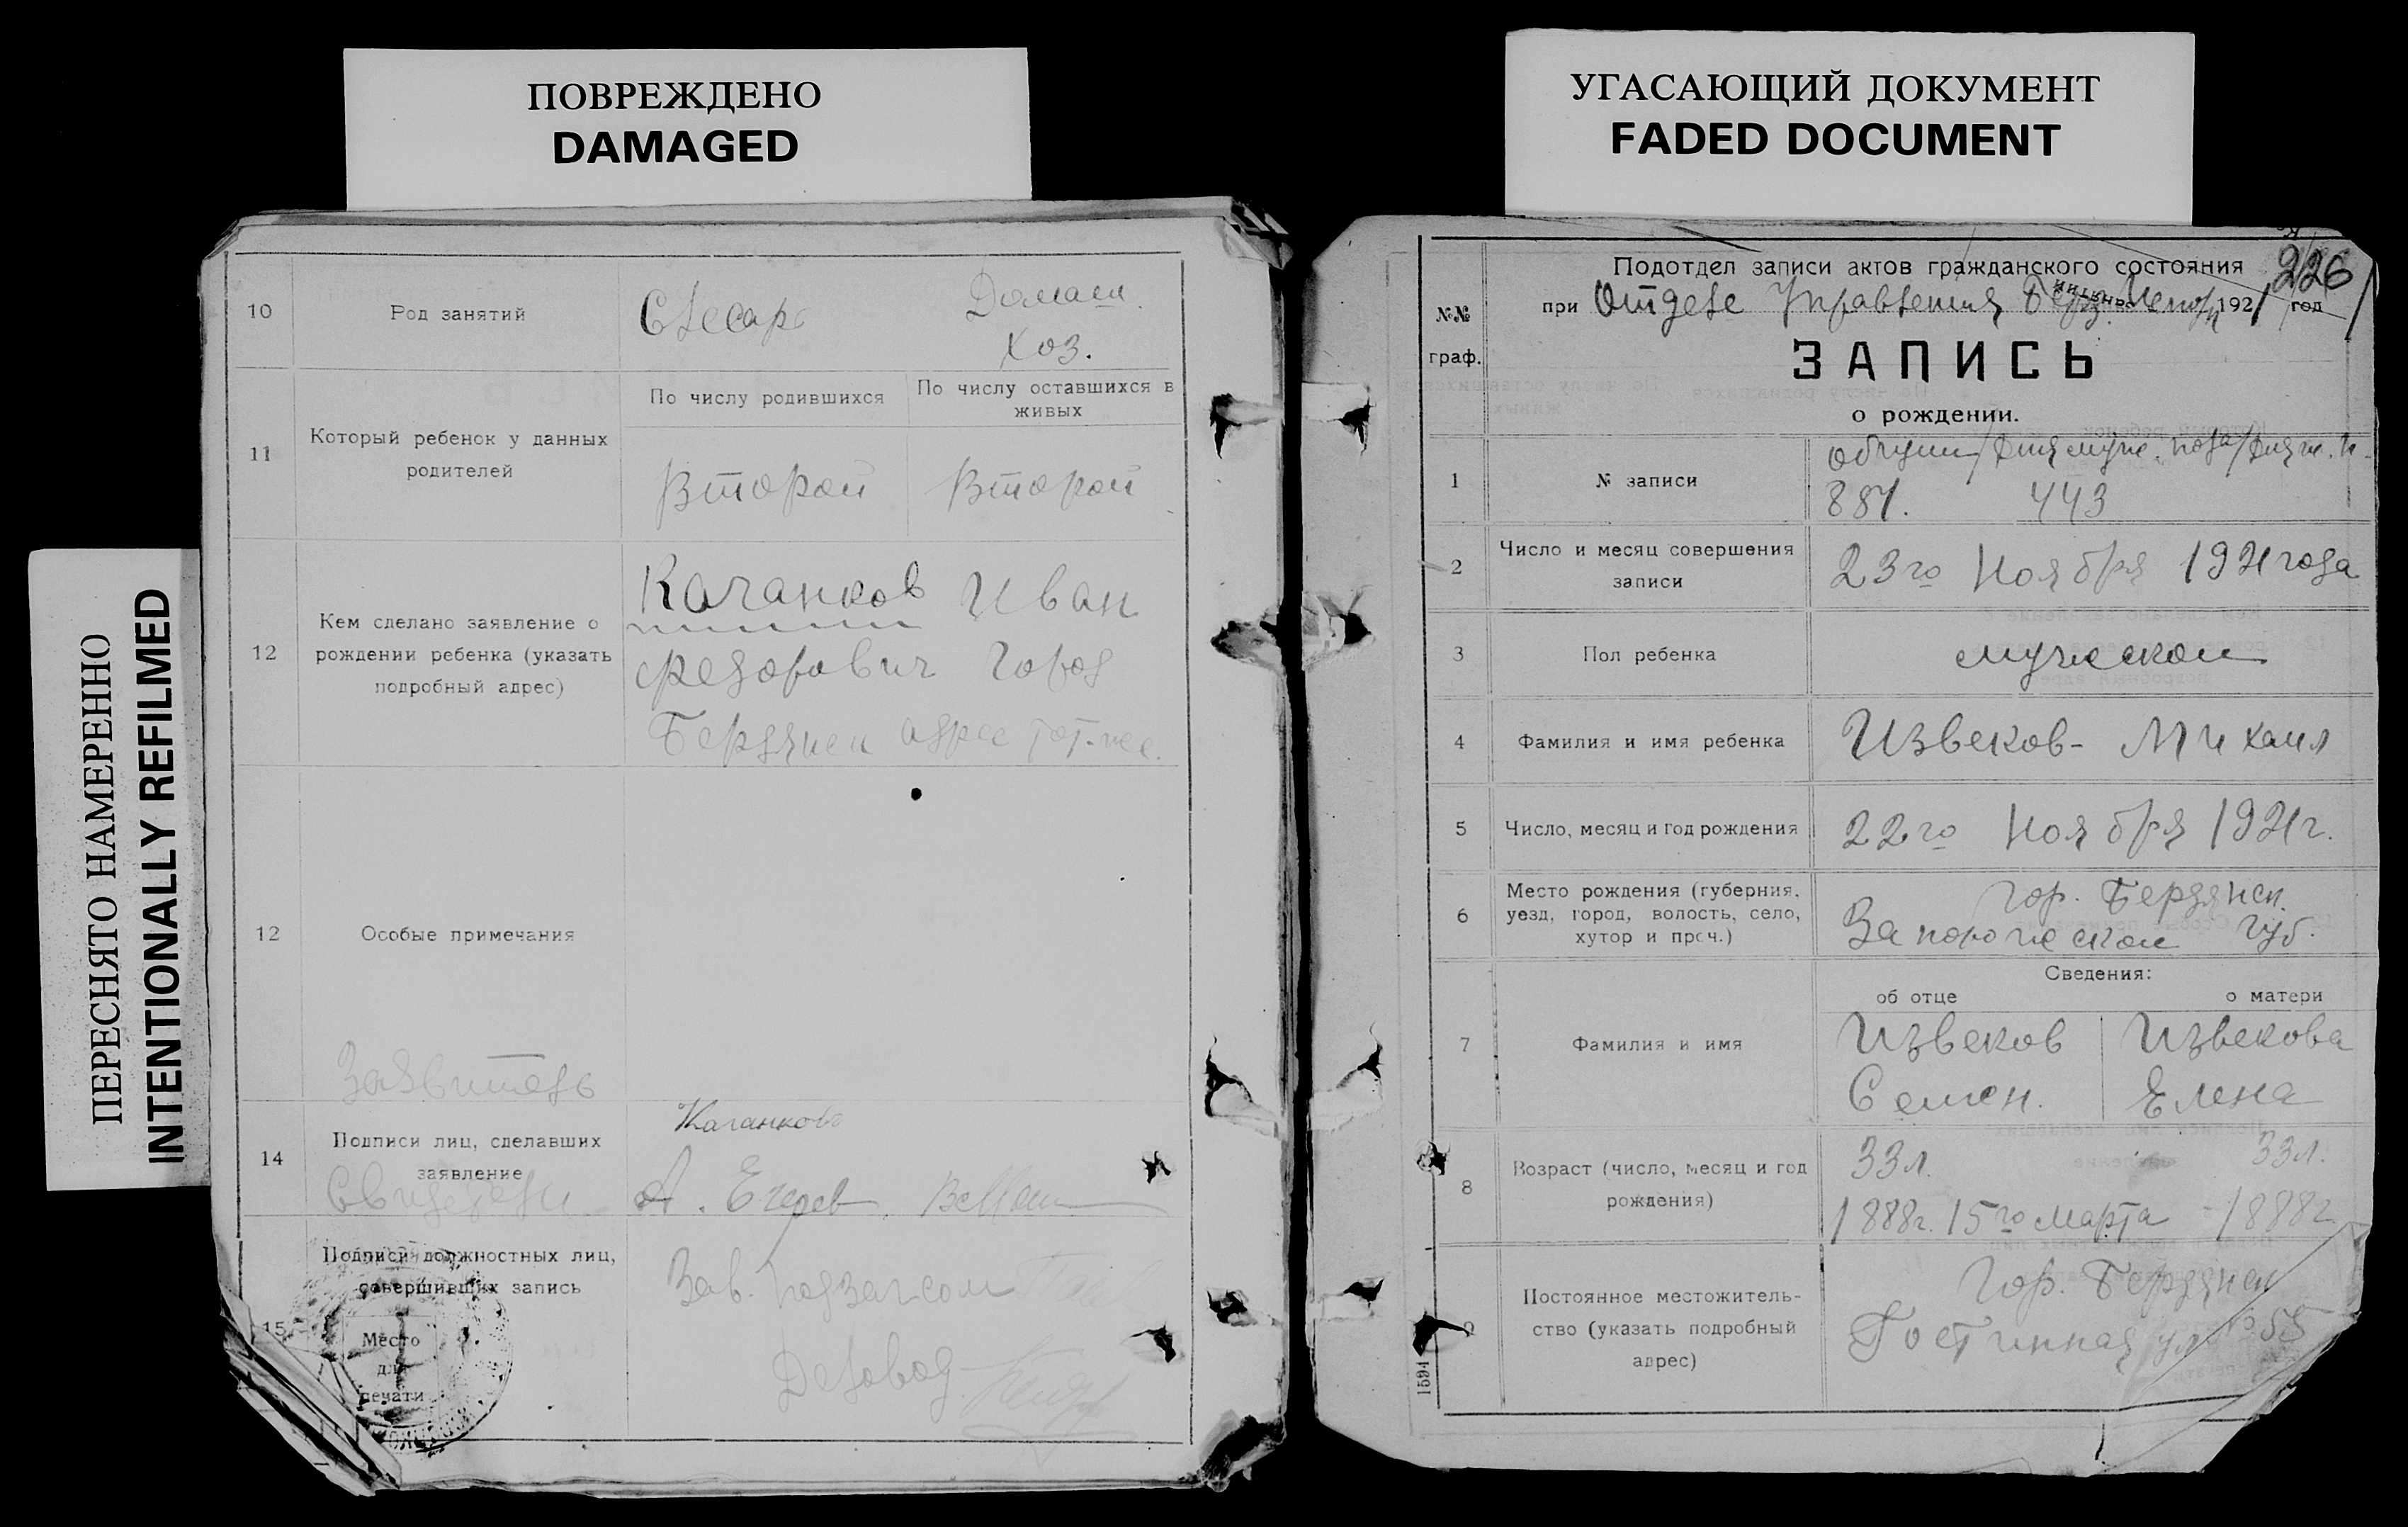 ПОВРЕЖДЕНО
DAMAGED
УГАСАЮЩИЙ ДОКУМЕНТ
FADED DOCUMENT
ПЕРЕСНЯТО НАМЕРЕННО
INTENTIONALLY REFILMED
10
Род занятий
Слесарь
Домаш.
хоз.
11
Который ребенок у данных
родителей
По числу родившихся
По числу оставшихся в
живых
Второй
Второй
12
Кем сделано заявление о
рождении ребенка (указать
подробный адрес)
Качанков Иван
Федорович город
Бердянск адрес тот-же.
12
Особые примечания
Заявитель
14
Подписи лиц, сделавших
заявление
Свидетели
Качанковъ
А. Егерев
15
Подписи должностных лиц,
совершивших запись
Место
для
печати
Зав. подзагсом
Деловод
226
Подотдел записи актов гражданского состояния
при Отделе Управления 1921 год
№№
граф.
ЗАПИСЬ
о рождении.
1
№ записи
Общий/Для муж. пола/Для ж. п.
881. 443
2
Число и месяц совершения
записи
23го Ноября 1921 года
3
Пол ребенка
мужской
4
Фамилия и имя ребенка
Извеков - Михаил
5
Число, месяц и год рождения
22го Ноября 1921г.
6
Место рождения (губерния,
уезд, город, волость, село,
хутор и проч.)
гор. Бердянск.
Запорожской губ.
Сведения:
об отце
о матери
7
Фамилия и имя
Извеков
Семен.
Извекова
Елена
8
Возраст (число, месяц и год
рождения)
33л.
1888г. 15го Марта
33л.
-1888г.
9
Постоянное местожитель-
ство (указать подробный
адрес)
Гор. Бердянск
Гостинная ул № 55
1594